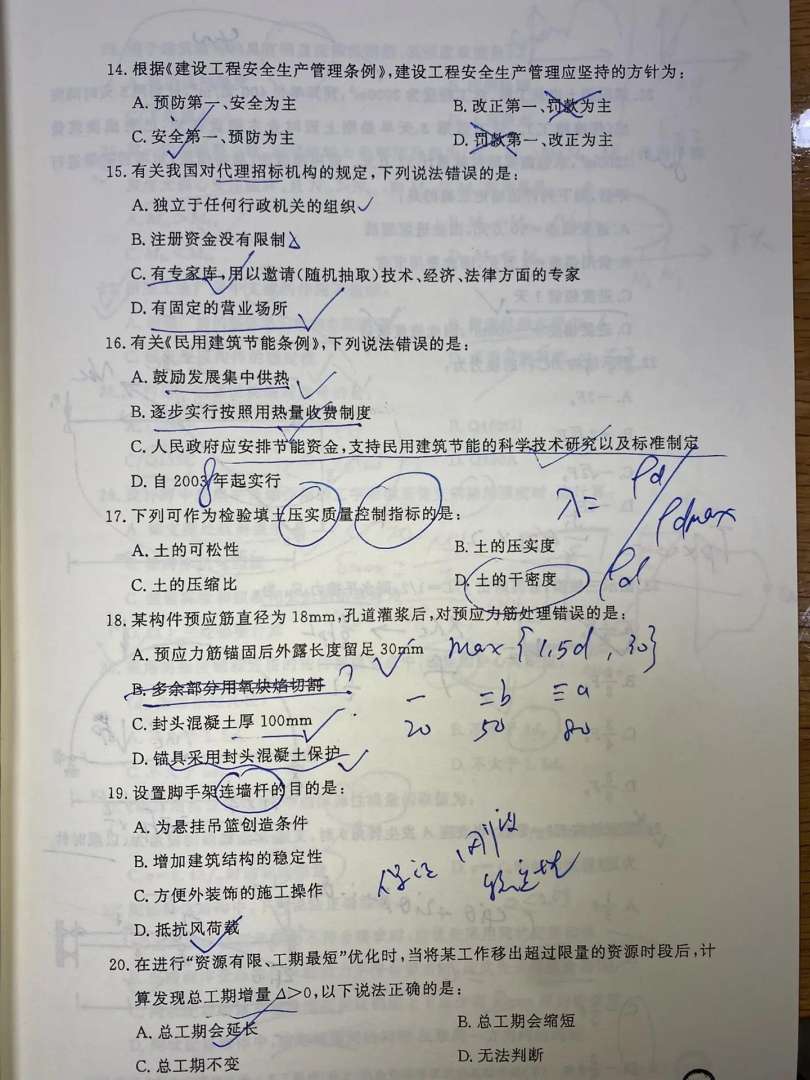 14. 根据《建设工程安全生产管理条例》,建设工程安全生产管理应坚持的方针为:
A. 预防第一、安全为主 B. 改正第一、罚款为主
C. 安全第一、预防为主 D. 罚款第一、改正为主
15. 有关我国对代理招标机构的规定,下列说法错误的是:
A. 独立于任何行政机关的组织
B. 注册资金没有限制
C. 有专家库,用以邀请(随机抽取)技术、经济、法律方面的专家
D. 有固定的营业场所
16. 有关《民用建筑节能条例》,下列说法错误的是:
A. 鼓励发展集中供热
B. 逐步实行按照用热量收费制度
C. 人民政府应安排节能资金,支持民用建筑节能的科学技术研究以及标准制定
D. 自 2003 年起实行
8
17. 下列可作为检验填土压实质量控制指标的是:
λ= ρd / ρdmax
A. 土的可松性 B. 土的压实度
C. 土的压缩比 D. 土的干密度 ρd
18. 某构件预应筋直径为 18mm,孔道灌浆后,对预应力筋处理错误的是:
A. 预应力筋锚固后外露长度留足 30mm max{1.5d,30}
B. 多余部分用氧炔焰切割 ? 一 二b 三a
C. 封头混凝土厚 100mm 20 50 80
D. 锚具采用封头混凝土保护
19. 设置脚手架连墙杆的目的是:
A. 为悬挂吊篮创造条件
B. 增加建筑结构的稳定性
C. 方便外装饰的施工操作
D. 抵抗风荷载
20. 在进行“资源有限、工期最短”优化时,当将某工作移出超过限量的资源时段后,计
算发现总工期增量 Δ>0,以下说法正确的是:
A. 总工期会延长 B. 总工期会缩短
C. 总工期不变 D. 无法判断